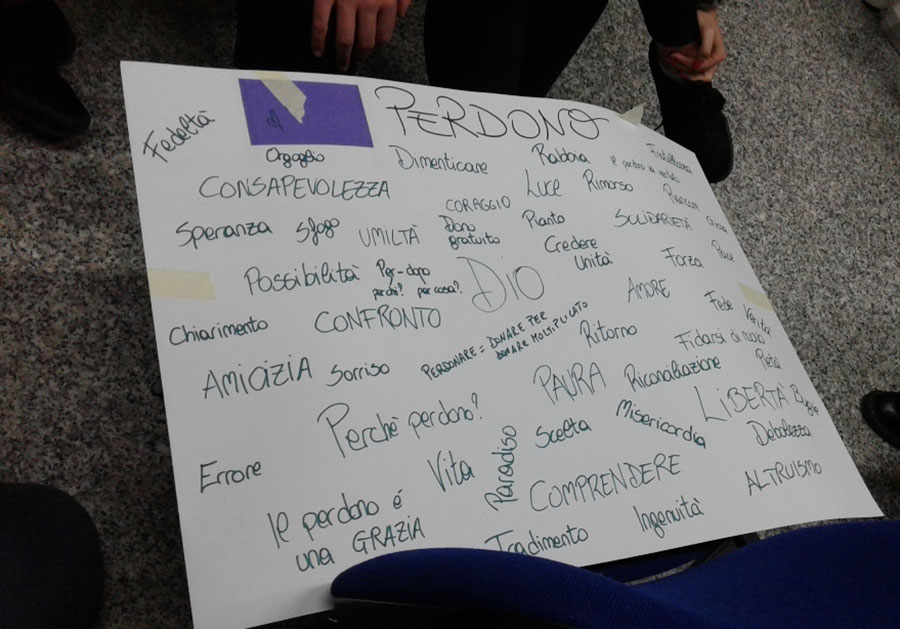 PERDONO
Fedeltà
Orgoglio
Dimenticare
Rabbia
CONSAPEVOLEZZA
Luce
Rimorso
CORAGGIO
Speranza
Sfogo
UMILTÀ
Dono
gratuito
Pianto
SOLIDARIETÀ
Credere
Unità
Forza
Pace
Possibilità
Per-dopo
perchi? per cosa?
DIO
AMORE
Chiarimento
CONFRONTO
PERDONARE = DONARE PER
DONARE MOLTIPLICATO
Ritorno
Fede
Fidarsi di nuovo
AMICIZIA
Sorriso
PAURA
Riconciliazione
Pietà
Perchè perdono?
Scelta
Misericordia
LIBERTÀ
Bugie
Debolezza
Errore
Vita
Paradiso
COMPRENDERE
ALTRUISMO
Ie perdono é
una GRAZIA
Tradimento
Ingenuità